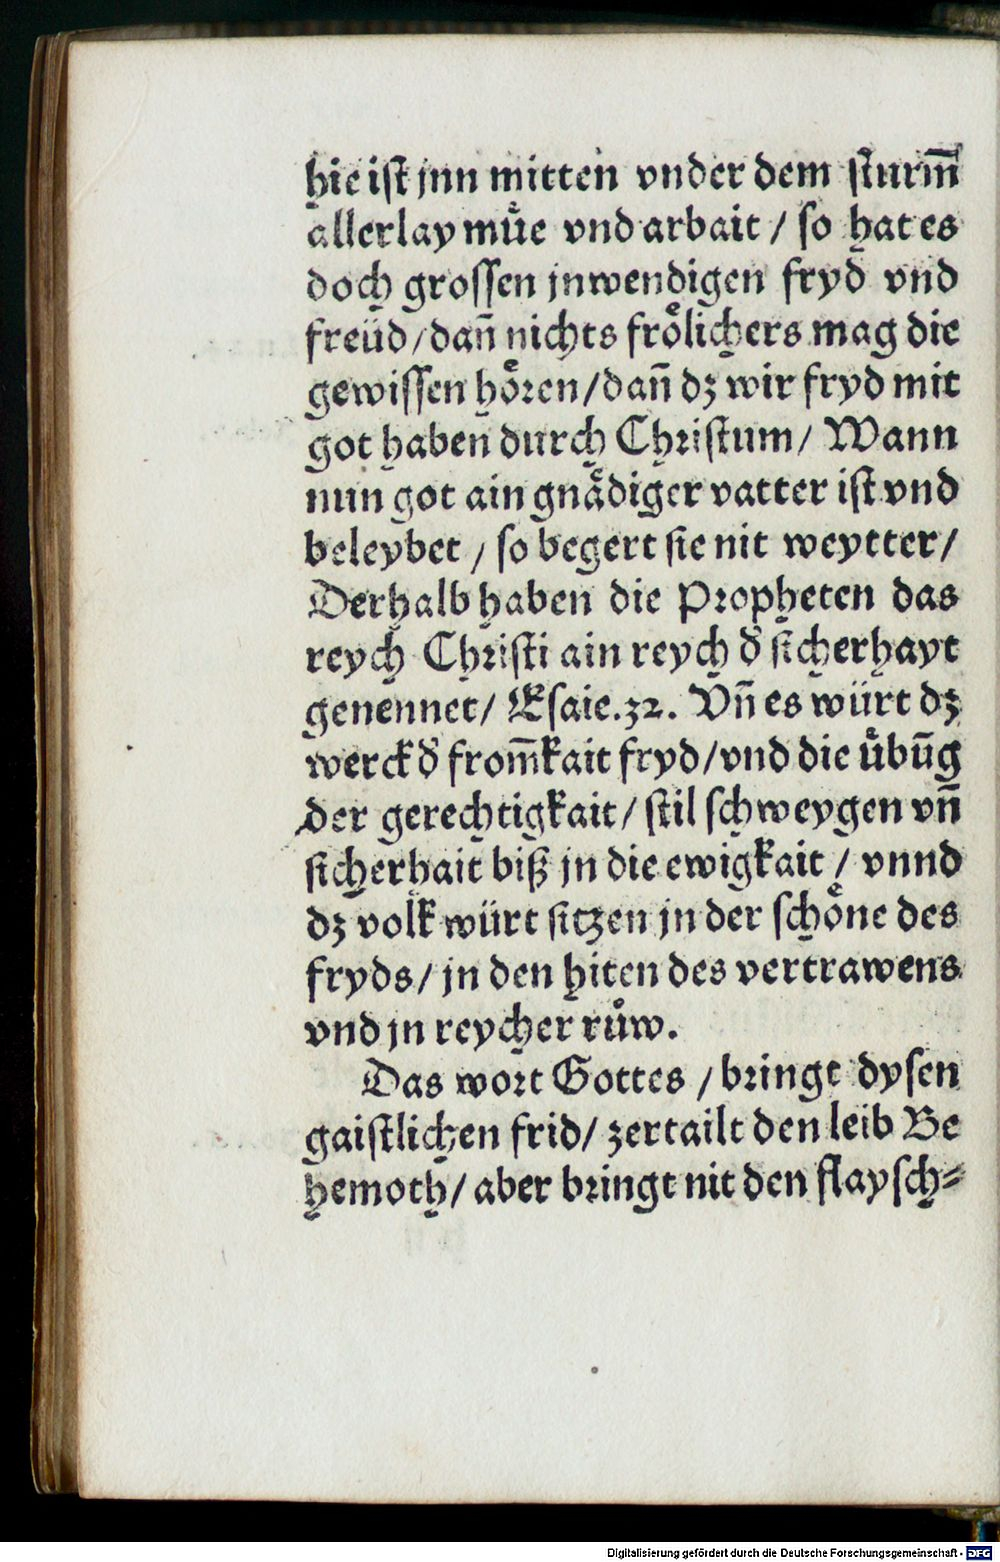 hie iſt jnn mitten vnder dem ſturm̅
allerlay muͤe vnd arbait / ſo hat es
doch groſſen jnwendigen fryd vnd
freüd / dañ nichts froͤlichers mag die
gewiſſen hoͤꝛen / dañ dꝫ wir fryd mit
got haben durch Chꝛiſtum / Wann
nun got ain gnaͤdiger vatter iſt vnd
beleybet / ſo begert ſie nit weytter /
Derhalb haben die Pꝛopheten das
reych Chꝛiſti ain reych d̕ ſicherhayt
genennet / Eſaie. 32. Vñ es würt dꝫ
werck d̕ from̅kait fryd / vnd die uͤbũg
der gerechtigkait / ſtil ſchweygen vñ
ſicherhait biß jn die ewigkait / vnnd
dꝫ volk würt ſitzen jn der ſchoͤne des
fryds / jn den hiten des vertrawens
vnd jn reycher ruͦw.
Das woꝛt Gottes / bꝛingt dyſen
gaiſtlichen frid / zertailt den leib Be
hemoth / aber bꝛingt nit den flayſch⸗
Digitalisierung gefördert durch die Deutsche Forschungsgemeinschaft - DFG